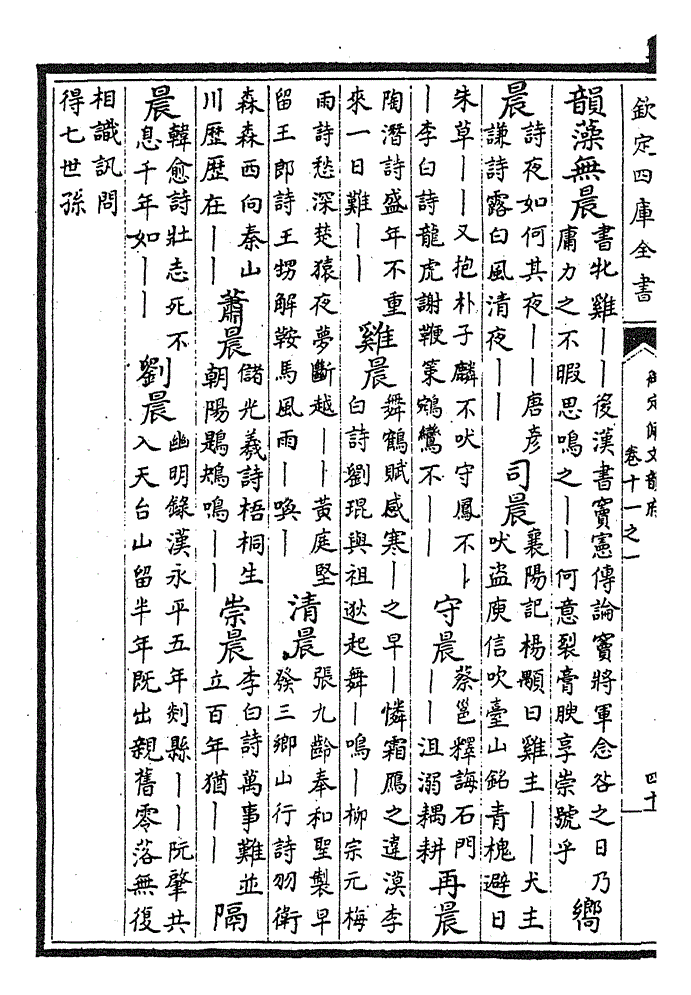 欽定四庫全書
卷十一之一
韻藻無晨
書牝雞——後漢書竇憲傳論竇將軍念咎之日乃
庸力之不暇思鳴之——何意裂膏腴享崇號乎
嚮
晨
詩夜如何其夜——唐彦
謙詩露白風清夜——
司晨
襄陽記楊顒曰雞主——犬主
吠盜庾信吹臺山銘青槐避日
朱草——又抱朴子麟不吠守鳳不—
—李白詩龍虎謝鞭策鵷鸞不——
守晨
蔡邕釋誨石門
——沮溺耦耕
再晨
陶潛詩盛年不重
來一日難——
雞晨
舞鶴賦感寒—之早—憐霜鴈之違漠李
白詩劉琨與祖逖起舞—鳴—柳宗元梅
雨詩愁深楚猿夜夢斷越——黃庭堅
留王郎詩王甥解鞍馬風雨—喚—
清晨
張九齡奉和聖製早
發三鄉山行詩羽衛
森森西向秦山
川歷歷在——
蕭晨
儲光羲詩梧桐生
朝陽鶗鴂鳴——
崇晨
李白詩萬事難並
立百年猶——
隔
晨
韓愈詩壯志死不
息千年如——
劉晨
幽明錄漢永平五年剡縣——阮肇共
入天台山留半年既出親舊零落無復
相識訊問
得七世孫